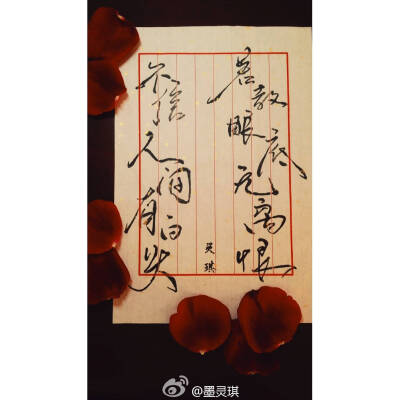 若教眼底无离恨
不信人间有白头
灵琪
@墨灵琪